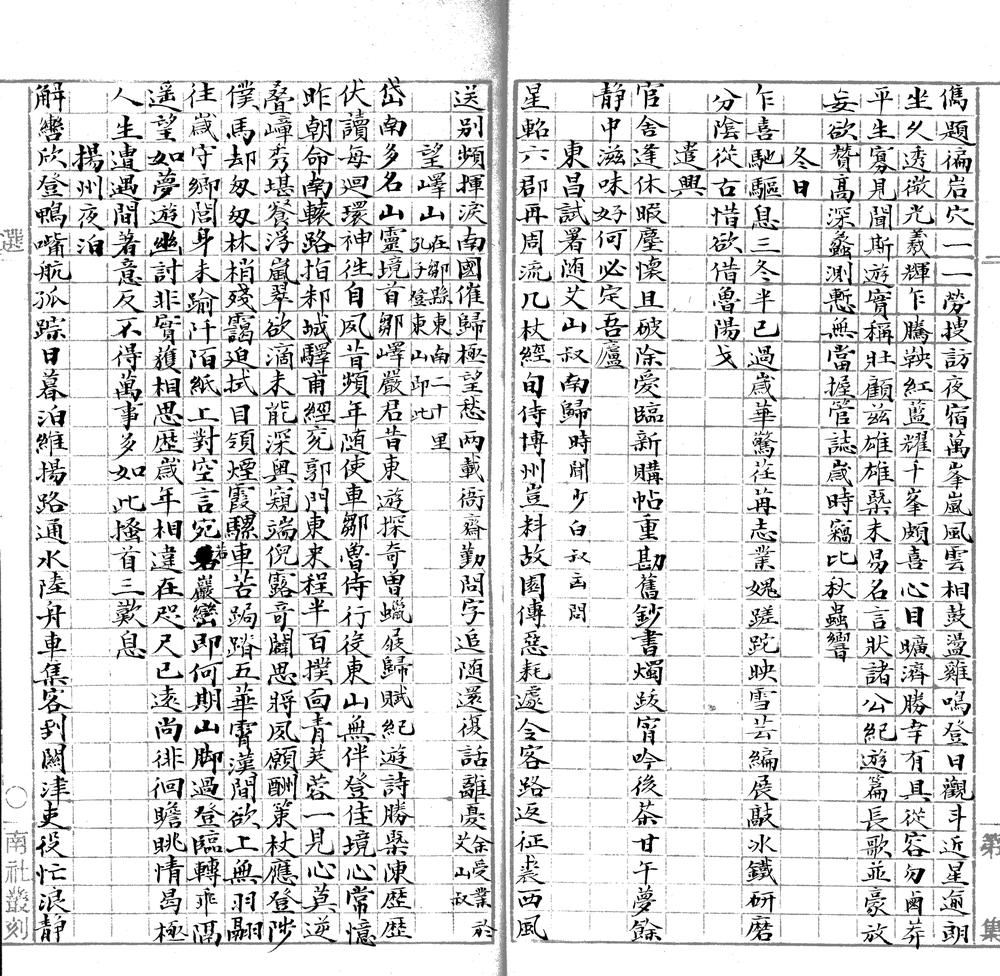 儁題徧岩穴一一勞搜訪夜宿萬峯嵐風雲相鼓盪雞鳴登日觀斗近星逾朗
坐久透微光羲輝乍騰鞅紅藍耀千峯頗喜心目曠濟勝幸有具從容勿鹵莽
平生寡見聞斯遊實稱旺顧茲雄雄槩未易名言狀諸公紀遊篇長歌並豪放
妄欲贊高深蠡測慙無當握管誌歲時竊比秋蟲響
冬日
乍喜馳驅息三冬半已過歲華驚荏苒志業媿蹉跎映雪芸編展敲冰鐵研磨
分陰從古惜欲借魯陽戈
遣興
官舍逢休暇塵懷且破除愛臨新購帖重勘舊鈔書燭跋宵吟後茶甘午夢餘
靜中滋味好何必定吾廬
東昌試署随艾山叔南歸時聞少白叔函問
星軺六郡再周流几杖經旬侍博州豈料故園傳惡耗遽令客路返征裘西風
送别頻揮淚南國催歸極望愁兩載衙齋勤問字追随還復話離憂余受業於艾山叔
望嶧山在鄒縣東南二十里孔子登東山即此
岱南多名山靈境首鄒嶧嚴君昔東遊探奇曾蠟屐歸賦紀遊詩勝槩陳歷歷
伏讀每迴環神徃自夙昔頻年随使車鄒魯侍行後東山無伴登佳境心常憶
昨朝命南轅路指邾城驛甫經兗郭門東來程半百撲面青芙蓉一見心莫逆
叠嶂秀堪餐浮嵐翠欲滴未能深奥窺端倪露奇闢思將夙願酬策杖應登陟
僕馬却匆匆林梢殘靄迫拭目領煙霞騾車苦跼蹐五華霄漢間欲上無羽翮
往歲守鄉閭身未踰阡陌紙上對空言宛若巖巒即何期山脚過登臨轉乖隔
遥望如夢遊幽討非實獲相思歷歲年相違在咫尺已遠尚徘徊瞻眺情曷極
人生遭遇間著意反不得萬事多如此搔首三歎息
揚州夜泊
解纜欣登鴨嘴航孤踪日暮泊維揚路通水陸舟車集客到關津吏役忙浪靜
選
南社叢刻
第
集